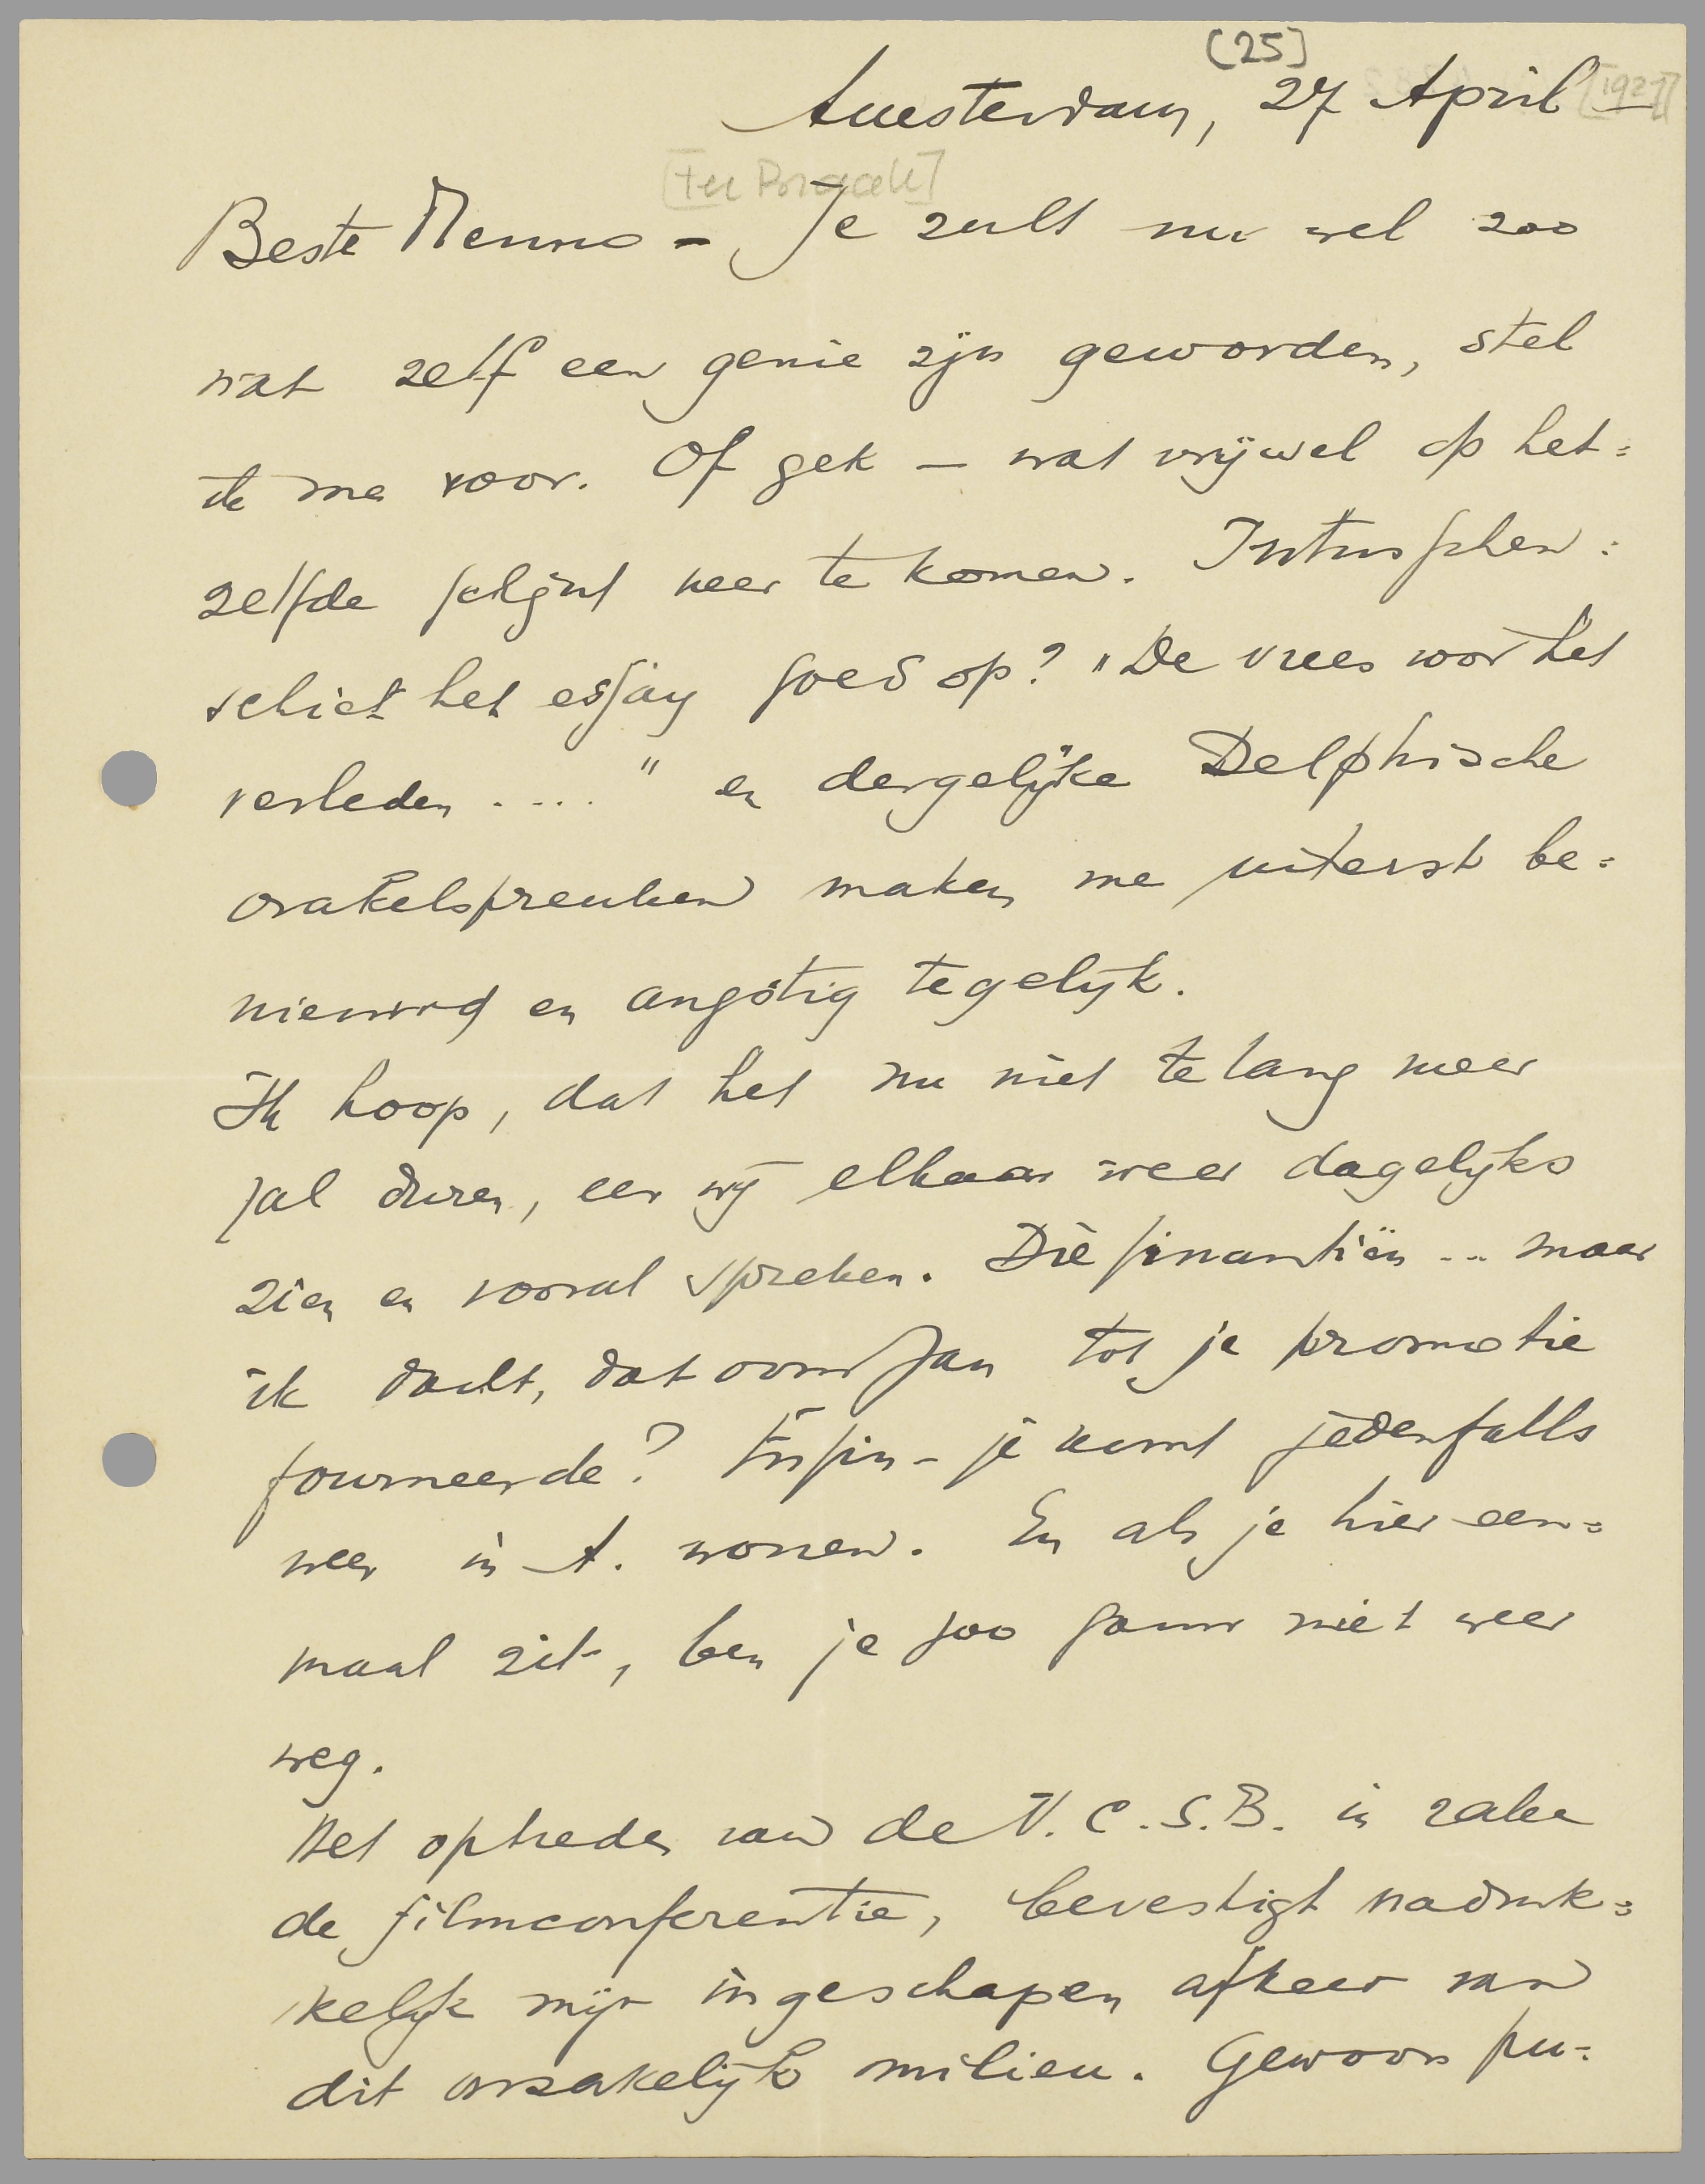 [25]
Amsterdam, 27 April [1927]
[ter Braak]
Beste Menno - Je zult nu wel zoo
wat zelf een genie zijn geworden, stel
ik me voor. Of gek — wat vrijwel op het=
zelfde schijnt neer te komen. Intusschen:
schiet het essay goed op? "De vrees voor het
verleden ...." en dergelijke Delphische
orakelspreuken maken me uiterst be=
nieuwd en angstig tegelijk.
Ik hoop, dat het nu niet te lang meer
zal duren, eer wij elkaar weer dagelijks
zien en vooral spreken. Die finantiën ... maar
ik dacht, dat oom Jan tot je promotie
fourneerde? Enfin - je komt jedenfalls
weer in A. wonen. En als je hier een=
maal zit, ben je zoo gauw niet weer
weg.
Het optreden van de V.C.S.B. in zake
de filmconferentie, bevestigt nadruk=
kelijk mijn ingeschapen afkeer van
dit onzakelijk milieu. Gewoon pu=